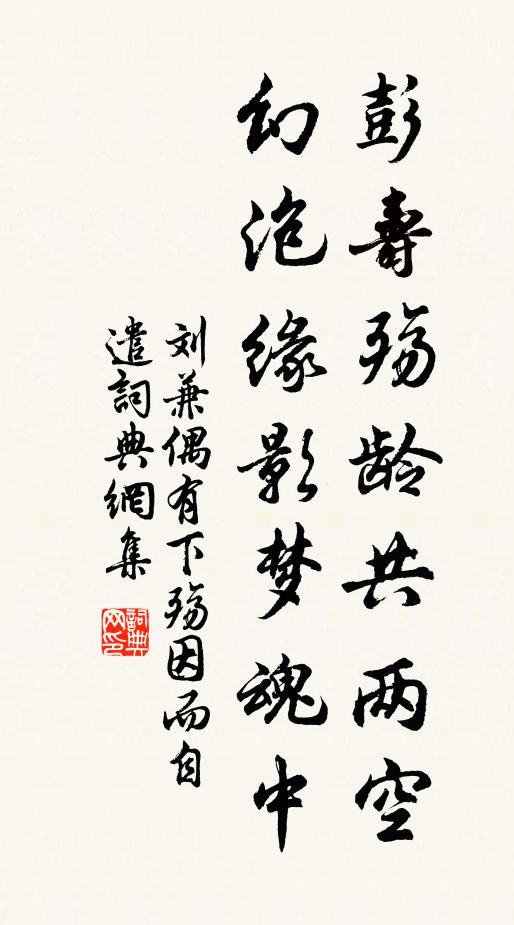 彭壽殤龄共两空
幻泡缘影梦魂中
刘兼偶有下殤因而自
遣詞典網集
詞典网印